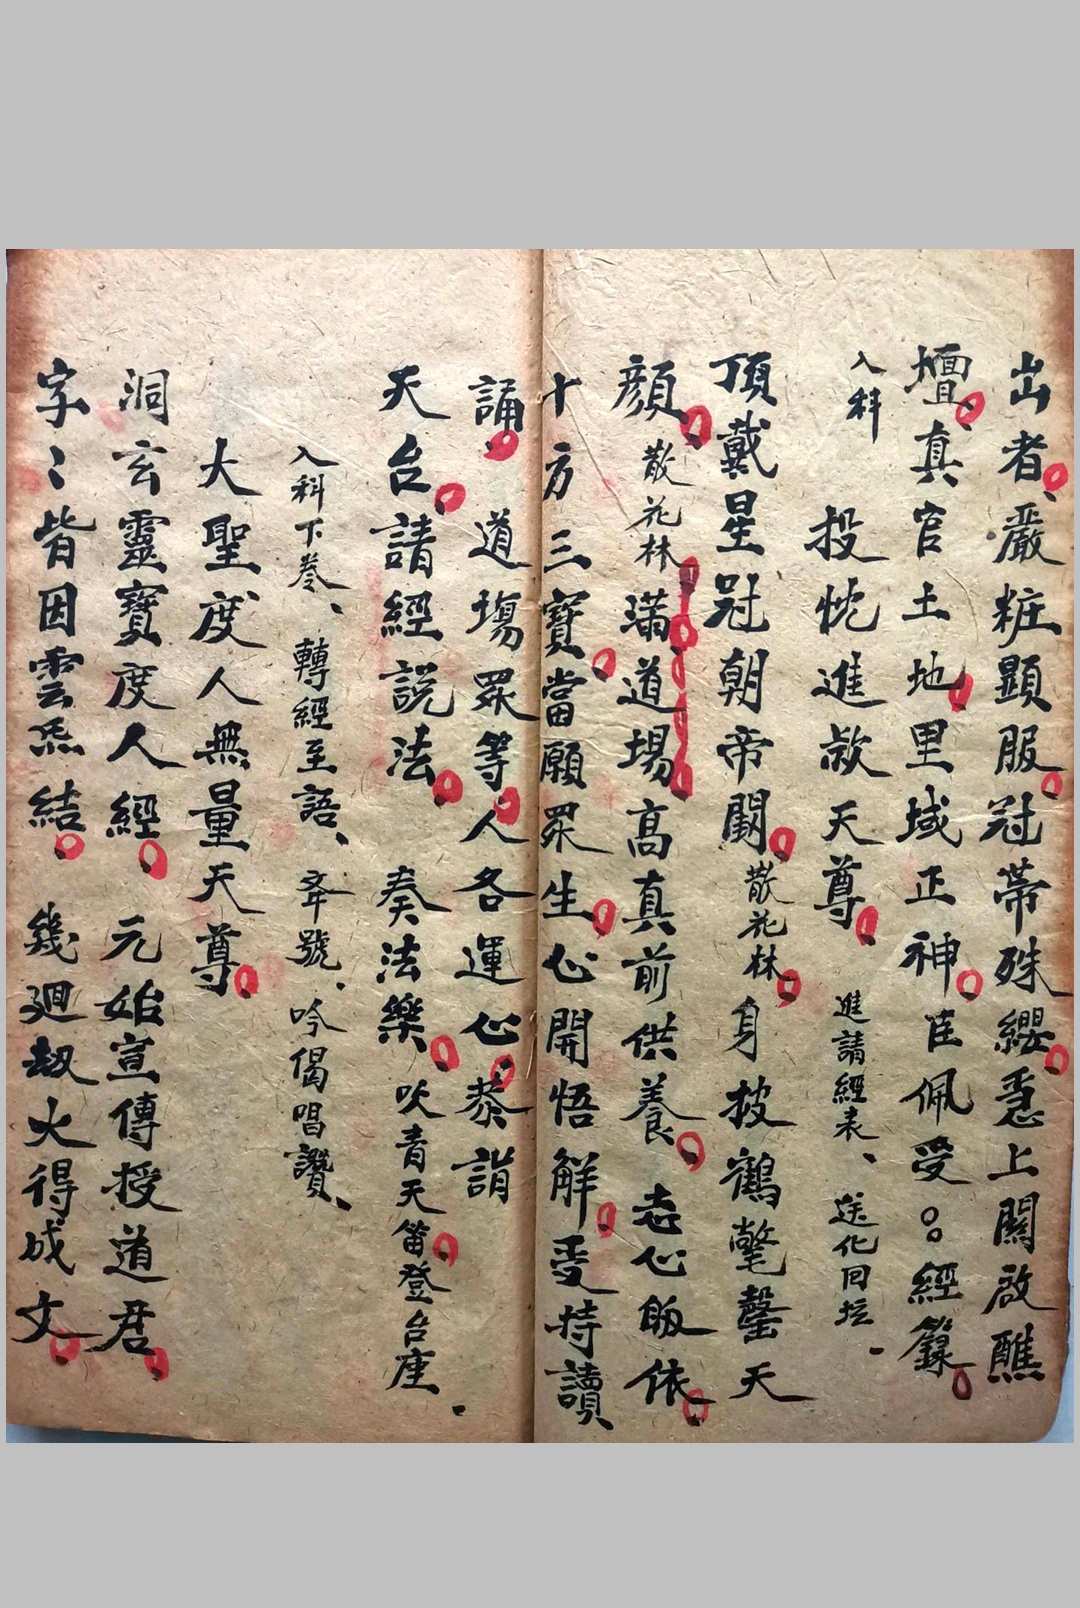 出者嚴粧顯服冠帶殊纓惪上闗啟醮
壇真官土地里域正神臣佩受〇〇經籙
入科 投忱進欵天尊 進請經表、送化回坛
頂戴星冠朝帝闕散花林身披鶴氅罄天
顔散花林滿道場高真前供養志心皈依
十方三寶當願眾生心開悟解受持讀
誦、道塲眾等人各運心恭詣
天台請經說法、奏法樂、吹青天笛登台座
入科下卷、轉經至語、年號、吟偈唱讚、
大聖度人無量天尊
洞玄靈寶度人經 元始宣傳授道君
字〻皆因雲炁結 幾廻劫火得成文